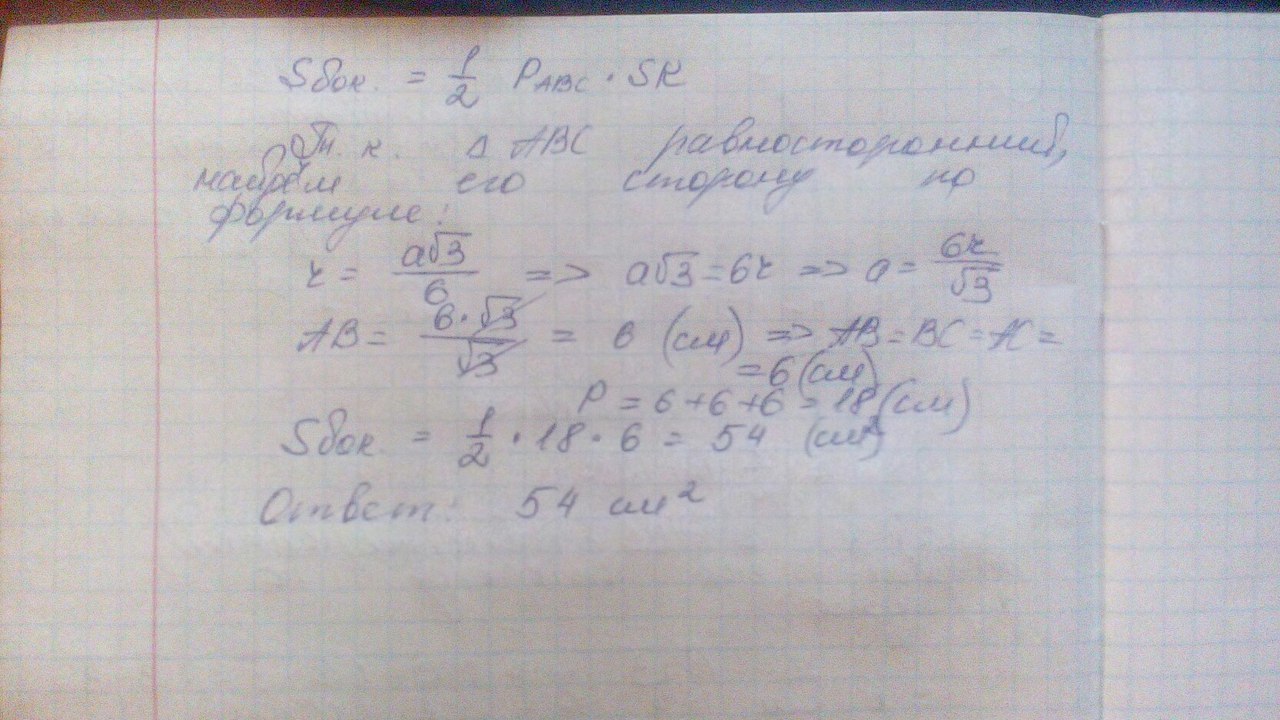 Sбок. = 1/2 P_ABC · SK
Т. к. △ ABC равносторонний,
найдём его сторону по
формуле:
r = a√3/6 => a√3 = 6r => a = 6r/√3
AB = 6·√3/√3 = 6 (см) => AB = BC = AC =
= 6 (см)
P = 6 + 6 + 6 = 18 (см)
Sбок. = 1/2 · 18 · 6 = 54 (см²)
Ответ: 54 см²